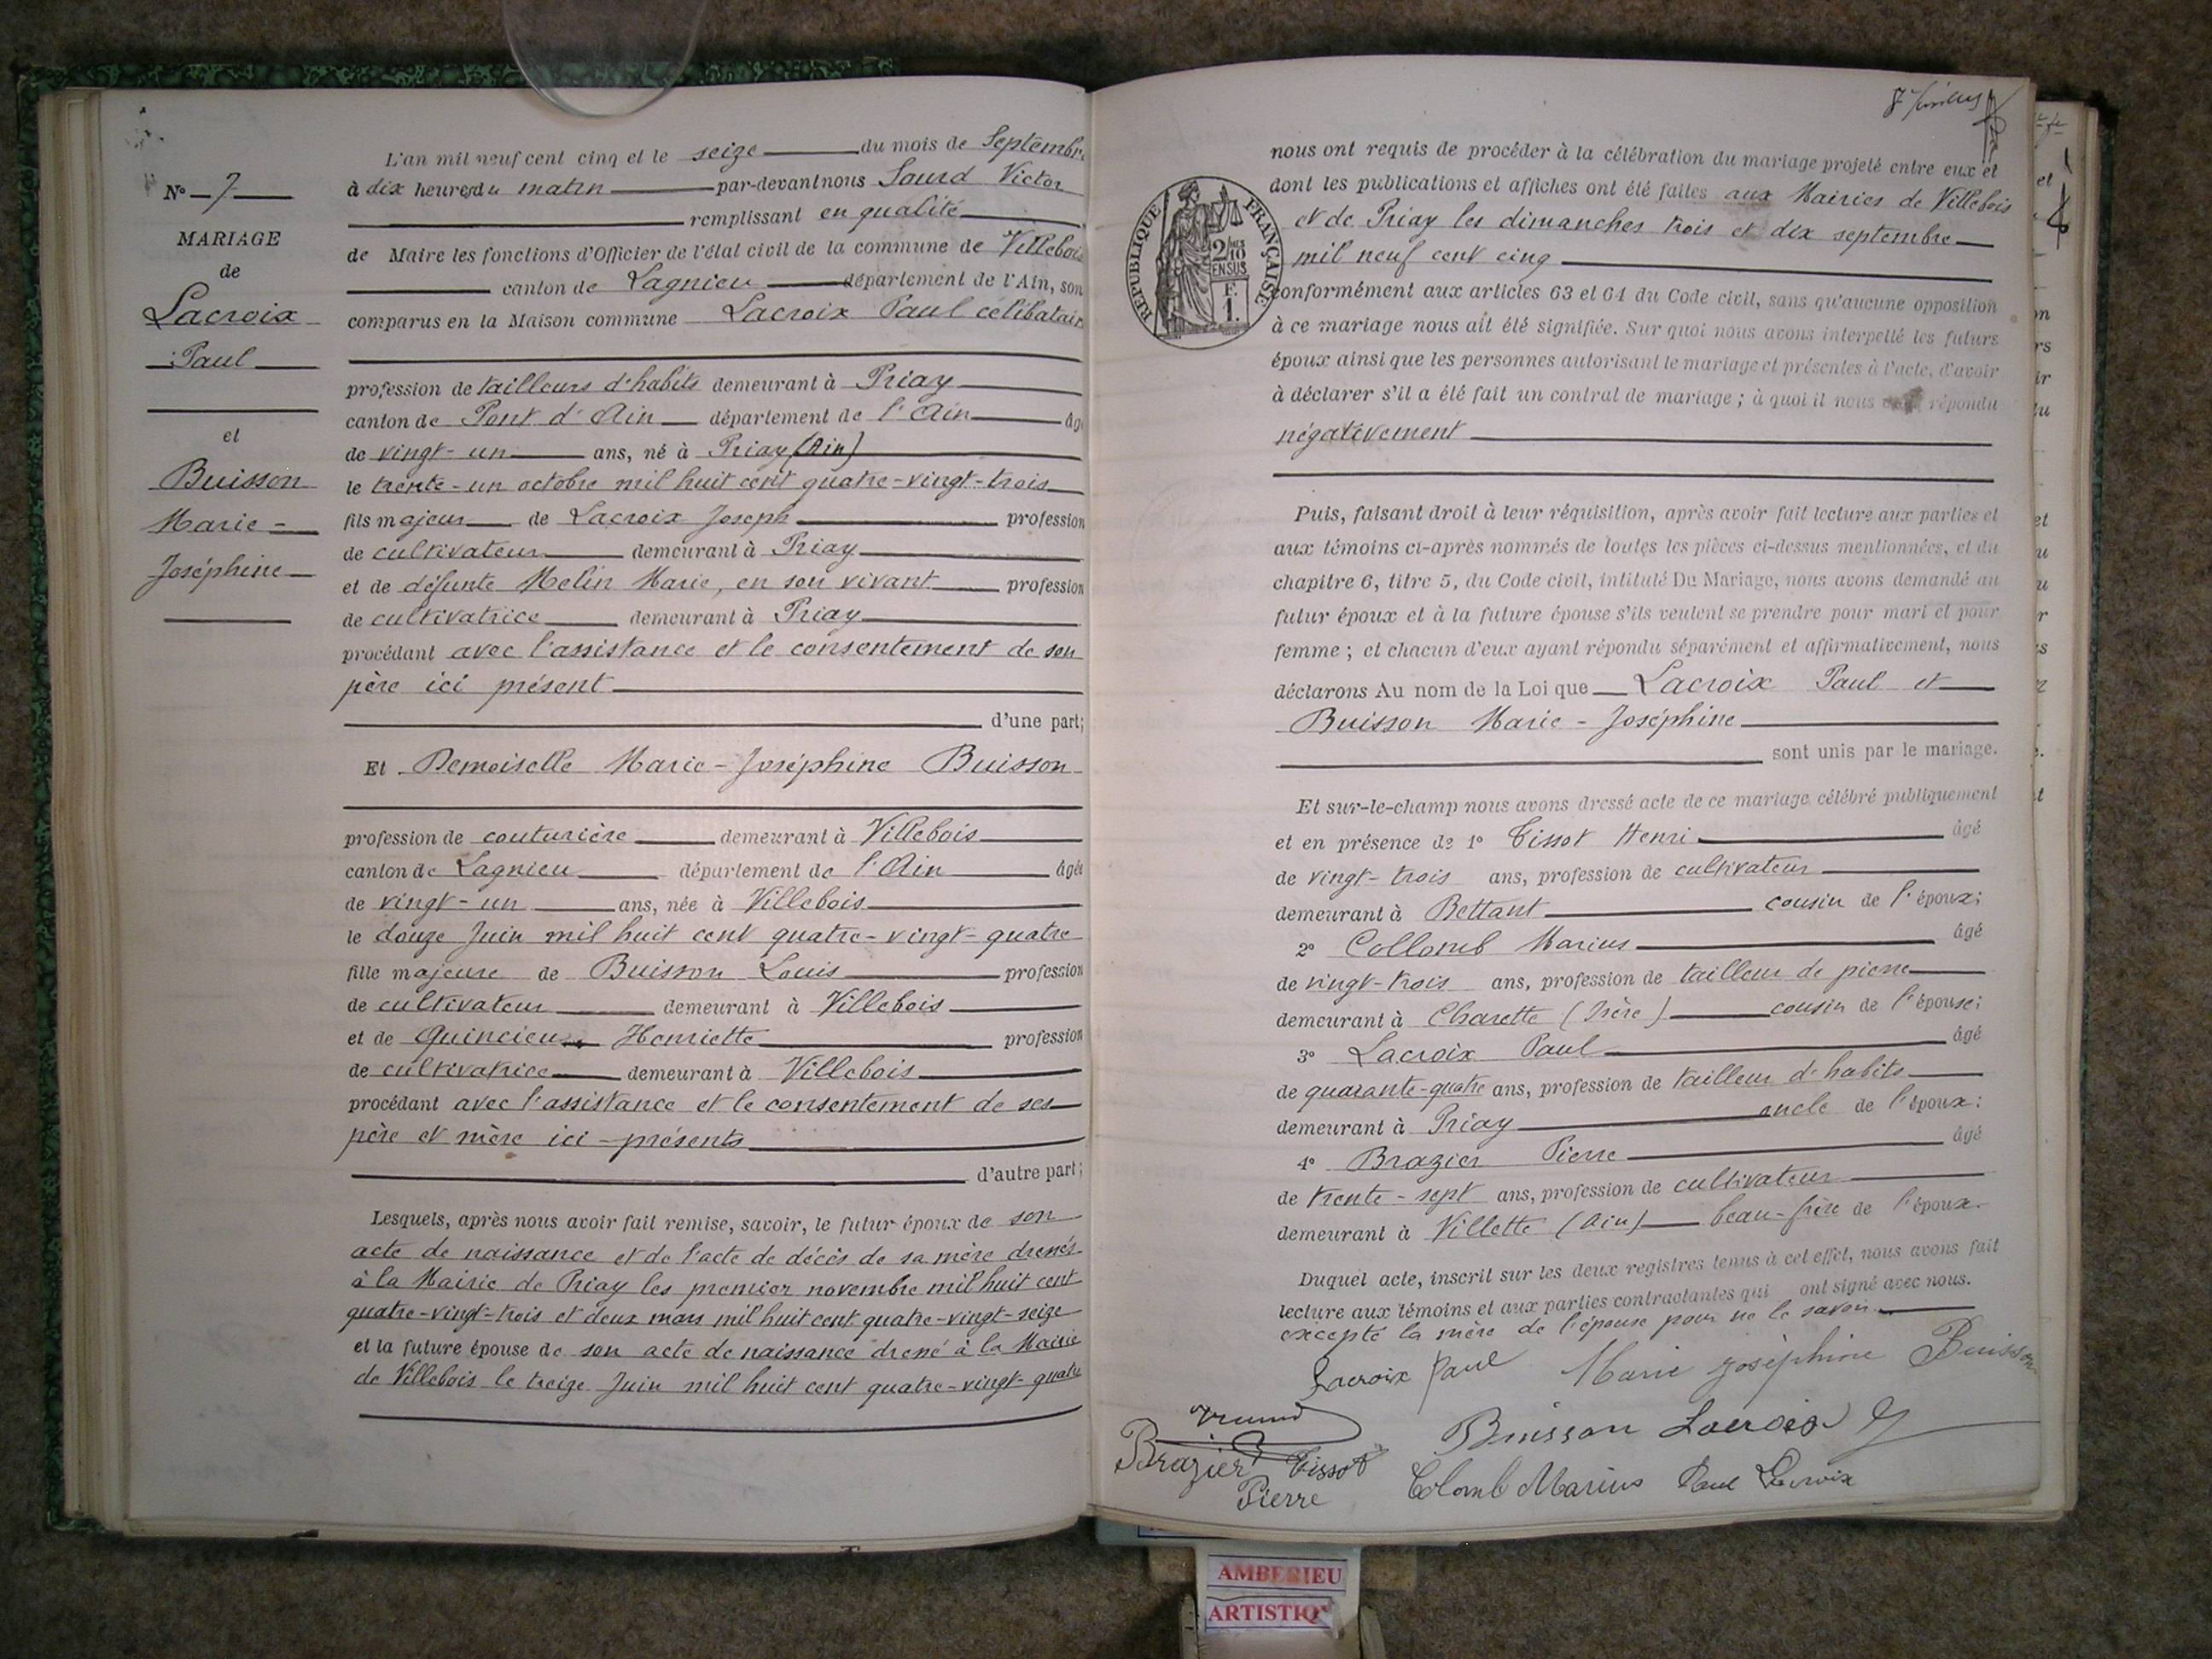 N° 7
MARIAGE
de
Lacroix
Paul
et
Buisson
Marie-
Joséphine
L'an mil neuf cent cinq et le seize du mois de Septembre
à dix heures du matin par-devant nous Sourd Victor
remplissant en qualité
de Maire les fonctions d'Officier de l'état civil de la commune de Villebois
canton de Lagnieu département de l'Ain, son
comparus en la Maison commune Lacroix Paul célibataire
profession de tailleurs d'habits demeurant à Priay
canton de Pont d'Ain département de l'Ain âgé
de vingt-un ans, né à Priay (Ain)
le trente-un octobre mil huit cent quatre-vingt-trois
fils majeur de Lacroix Joseph profession
de cultivateur demeurant à Priay
et de défunte Melin Marie, en son vivant profession
de cultivatrice demeurant à Priay
procédant avec l'assistance et le consentement de son
père ici présent
d'une part;
Et Demoiselle Marie-Joséphine Buisson
profession de couturière demeurant à Villebois
canton de Lagnieu département de l'Ain âgée
de vingt-un ans, née à Villebois
le douze Juin mil huit cent quatre-vingt-quatre
fille majeure de Buisson Louis profession
de cultivateur demeurant à Villebois
et de Quincieu Henriette profession
de cultivatrice demeurant à Villebois
procédant avec l'assistance et le consentement de ses
père et mère ici-présents
d'autre part;
Lesquels, après nous avoir fait remise, savoir, le futur époux de son
acte de naissance et de l'acte de décès de sa mère dressés
à la Mairie de Priay les premier novembre mil huit cent
quatre-vingt-trois et deux mars mil huit cent quatre-vingt-seize
et la future épouse de son acte de naissance dressé à la Mairie
de Villebois le treize Juin mil huit cent quatre-vingt-quatre
REPUBLIQUE FRANÇAISE
2/10
EN SUS
F.
1.
nous ont requis de procéder à la célébration du mariage projeté entre eux et
dont les publications et affiches ont été faites aux Mairies de Villebois
et de Priay les dimanches trois et dix septembre
mil neuf cent cinq
conformément aux articles 63 et 64 du Code civil, sans qu'aucune opposition
à ce mariage nous ait été signifiée. Sur quoi nous avons interpellé les futurs
époux ainsi que les personnes autorisant le mariage et présentes à l'acte, d'avoir
à déclarer s'il a été fait un contrat de mariage ; à quoi il nous répondu
négativement
Puis, faisant droit à leur réquisition, après avoir fait lecture aux parties et
aux témoins ci-après nommés de toutes les pièces ci-dessus mentionnées, et du
chapitre 6, titre 5, du Code civil, intitulé Du Mariage, nous avons demandé au
futur époux et à la future épouse s'ils veulent se prendre pour mari et pour
femme ; et chacun d'eux ayant répondu séparément et affirmativement, nous
déclarons Au nom de la Loi que Lacroix Paul et
Buisson Marie-Joséphine
sont unis par le mariage.
Et sur-le-champ nous avons dressé acte de ce mariage célébré publiquement
et en présence de 1° Tissot Henri âgé
de vingt-trois ans, profession de cultivateur
demeurant à Bettant cousin de l'époux;
2° Collomb Marius âgé
de vingt-trois ans, profession de tailleur de pierre
demeurant à Charette (Isère) cousin de l'épouse;
3° Lacroix Paul âgé
de quarante-quatre ans, profession de tailleur d'habits
demeurant à Priay oncle de l'époux:
4° Brazier Pierre âgé
de trente-sept ans, profession de cultivateur
demeurant à Villette (Ain) beau-frère de l'époux.
Duquel acte, inscrit sur les deux registres tenus à cet effet, nous avons fait
lecture aux témoins et aux parties contractantes qui ont signé avec nous.
excepté la mère de l'épouse pour ne le savoir.
Lacroix Paul Marie Joséphine Buisson
Buisson Lacroix J
Brazier Tissot
Pierre
Colomb Marius Paul Lacroix
AMBERIEU
ARTISTIQ